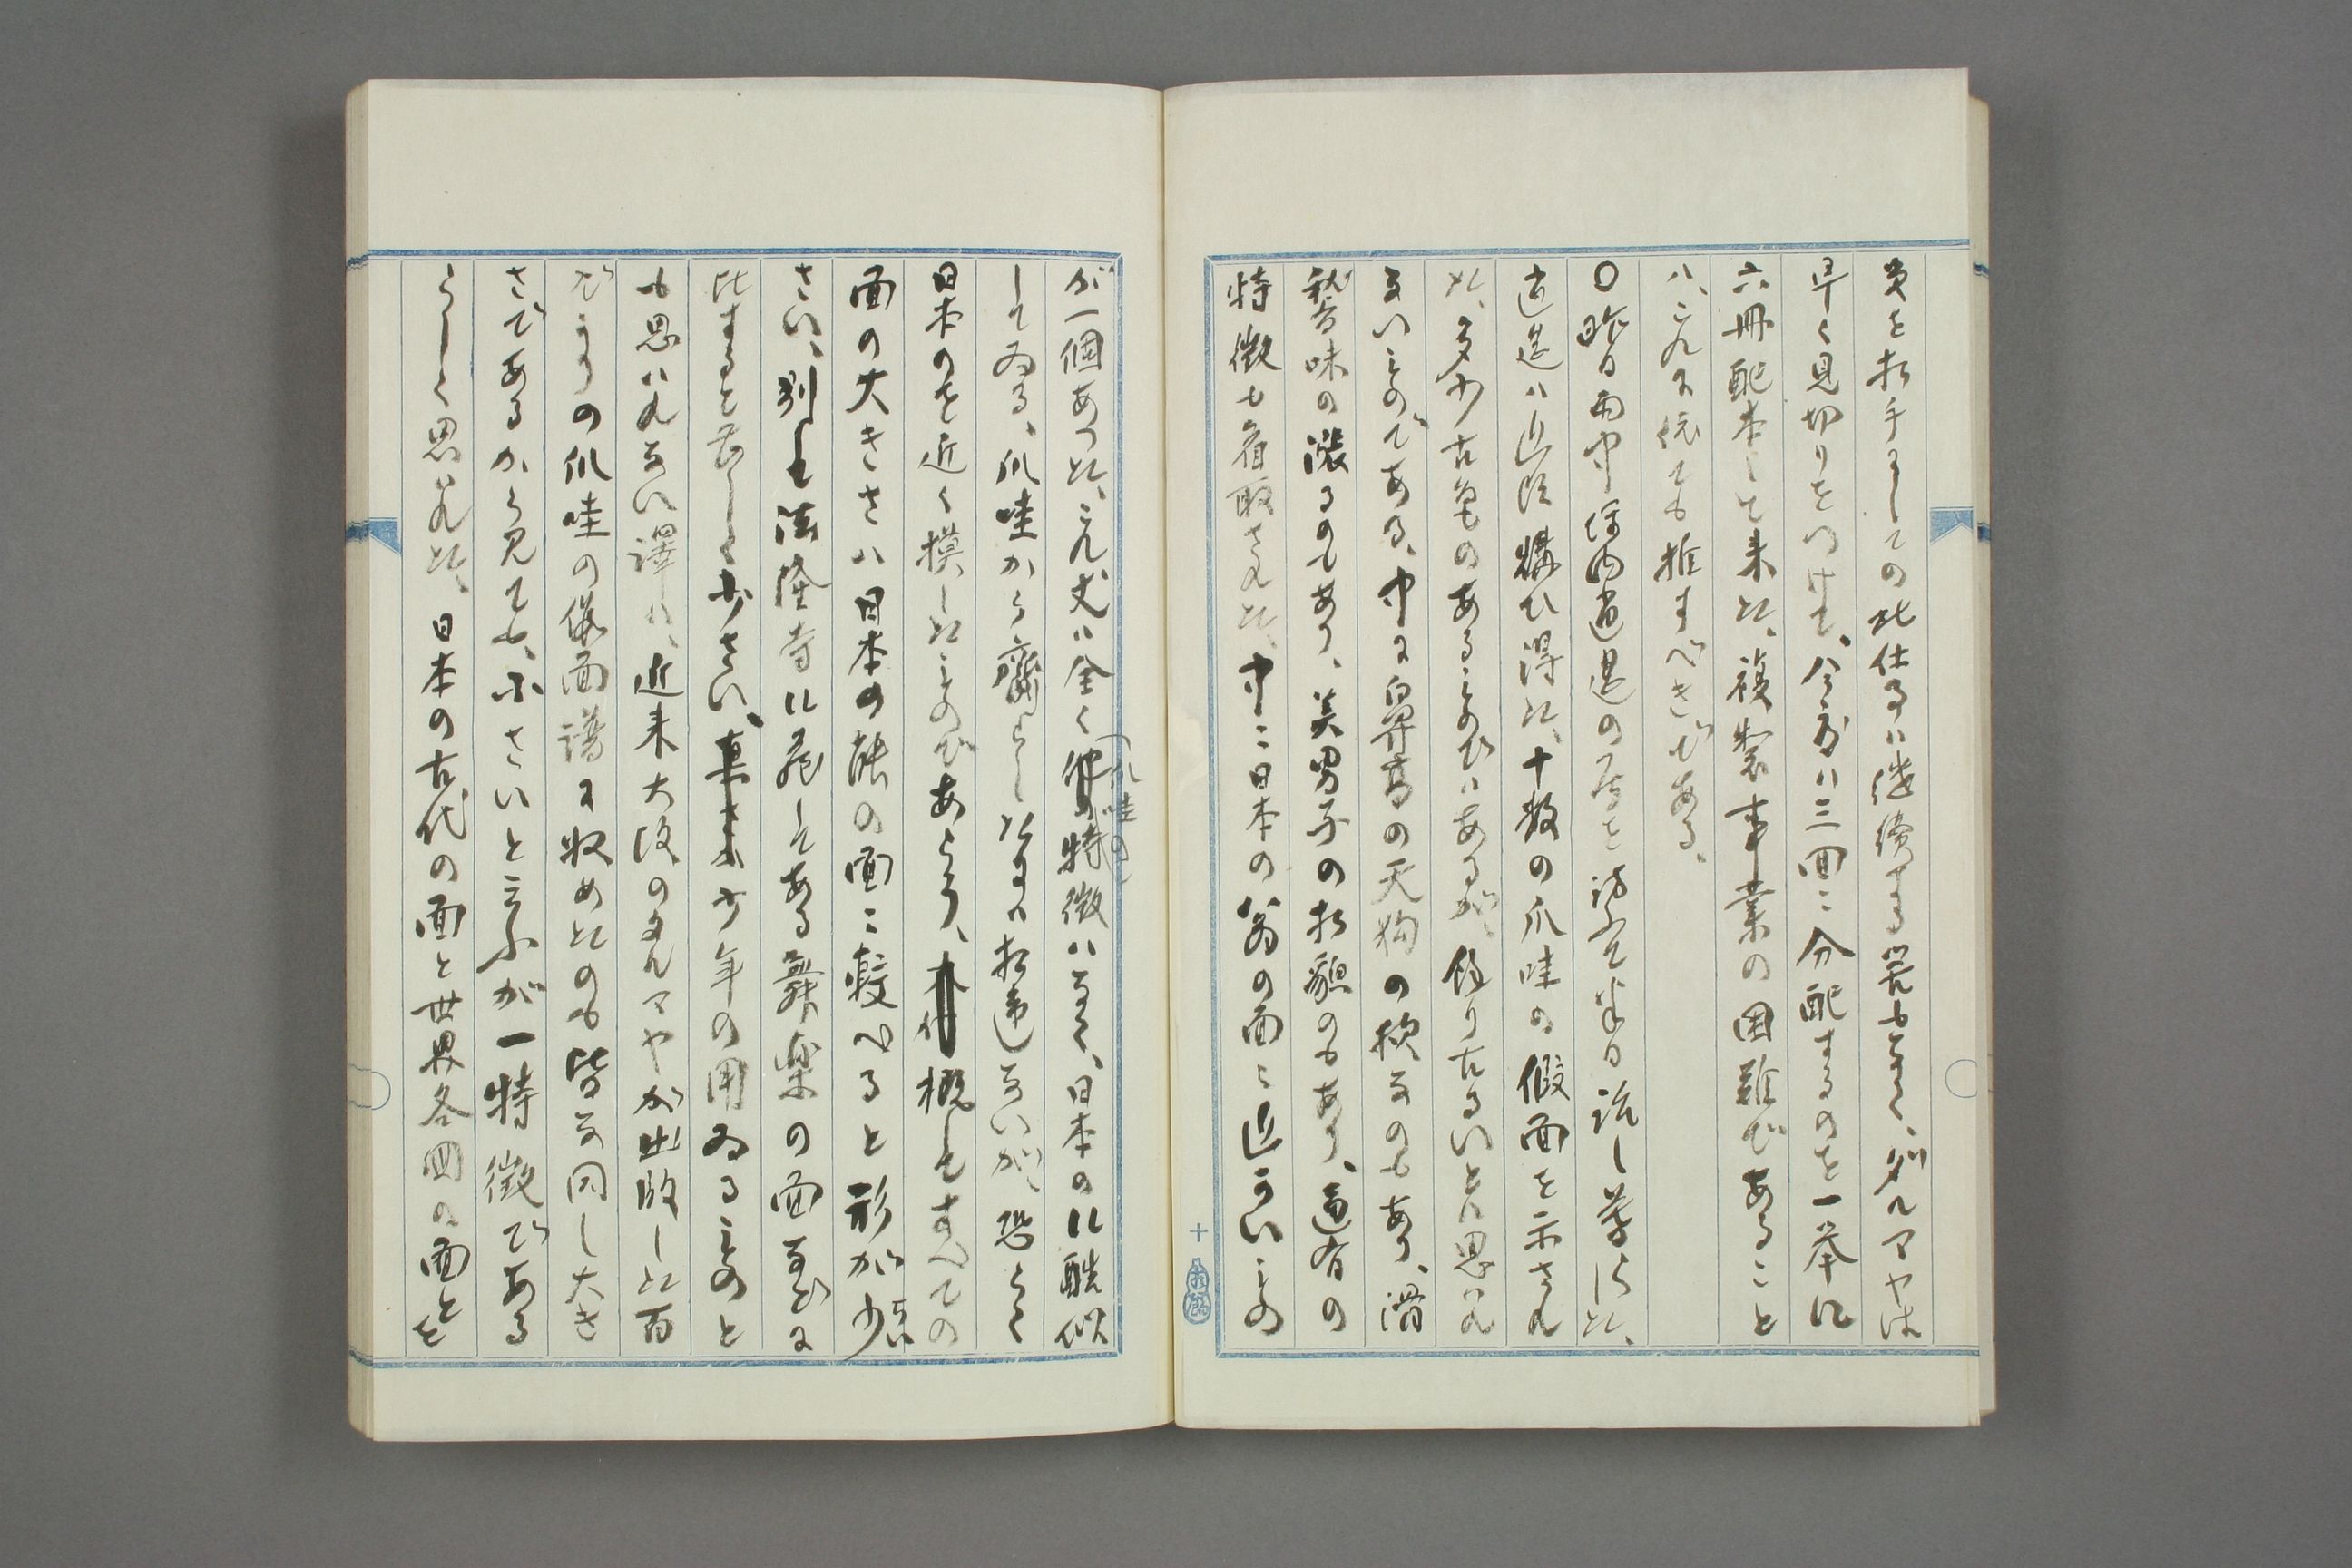 費を相手としての此仕事ハ継続する界もなく、ダルマヤは
早く見切りをつけて、今度ハ三回ニ分配するのを一挙に
六冊配本して来た、複製事業の困難であること
ハ、これに依ても推すべきである、
〇昨日雨中坪内逍遥の居を訪ふて半日話し暮らした、
逍遥ハ近頃購ひ得た、十数の爪哇の假面を示され
た、多少古色のあるものびハあるが、餘り古るいとハ思ハれ
ないものである、中に鼻高の天狗の様なのもあり、滑
稽味の漲るのもあり、美男子の相貌のもあり、通有の
特徴も看取された、中ニ日本の翁の面ニ近かいもの
が一個あつた、これ丈ハ全く(爪哇の)特徴ハなく、日本のに酷似
してゐる、爪哇から齎らした事ハ相違ないが、恐らく
日本のを近く摸したものであらう、概してすべての
面の大きさハ日本の能の面ニ較べると形が少ちい
さい、別しも法隆寺に蔵してある舞楽の面などに
比すると甚しく少さい、少年の用ゐるものと
も思ハれない譯だ、近来大阪のダルマヤが出版した百
びよりの爪哇の假面譜に収めたのも皆な同し大き
さであるから見ても、小さいと云ふが一特徴である
らしく思ハれた、日本の古代の面と世界各国の面とを
十